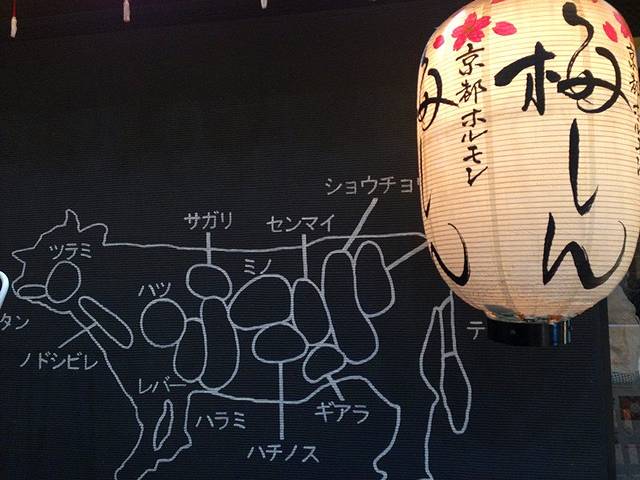 京都ホルモン
梅しん
ショウチョウ
サガリ
センマイ
ツラミ
ミノ
ハツ
タン
ノドシビレ
テ
レバー
ハラミ
ギアラ
ハチノス